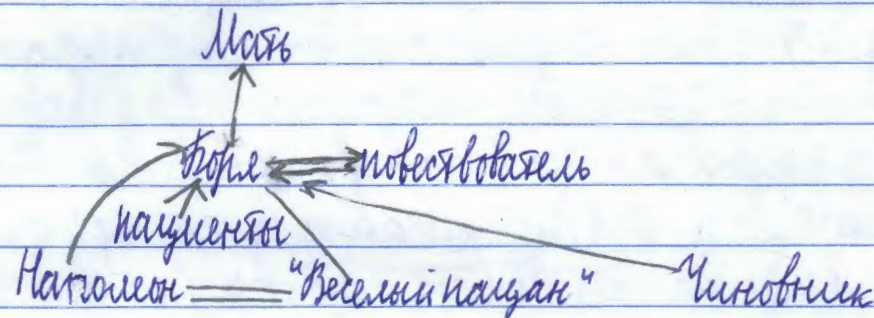 Мать
Боря повествователь
пациенты
Наполеон "Веселый пацан" Чиновник